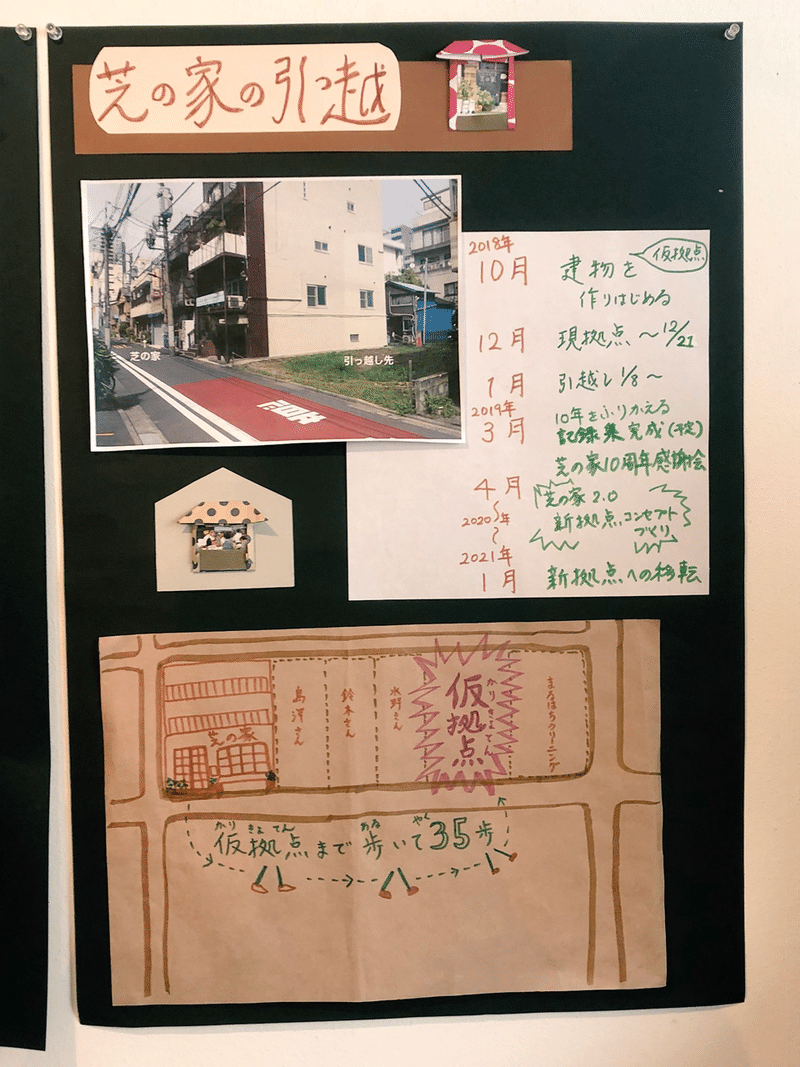 芝の家の引っ越
芝の家
引っ越し先
2018年
10月 建物を 仮拠点
作りはじめる
12月 現拠点 〜12/21
1月 引越し 1/8〜
2019年
3月 10年をふりかえる
記録集完成(予定)
芝の家10周年感謝会
4月 芝の家2.0
〜
2020年 新拠点コンセプト
づくり
〜
2021年
1月 新拠点への移転
芝の家
島澤さん
鈴木さん
水野さん
かりきょてん
仮拠点
まるはちクリーニング
かり きょ てん ある やく
仮拠点まで歩いて35歩